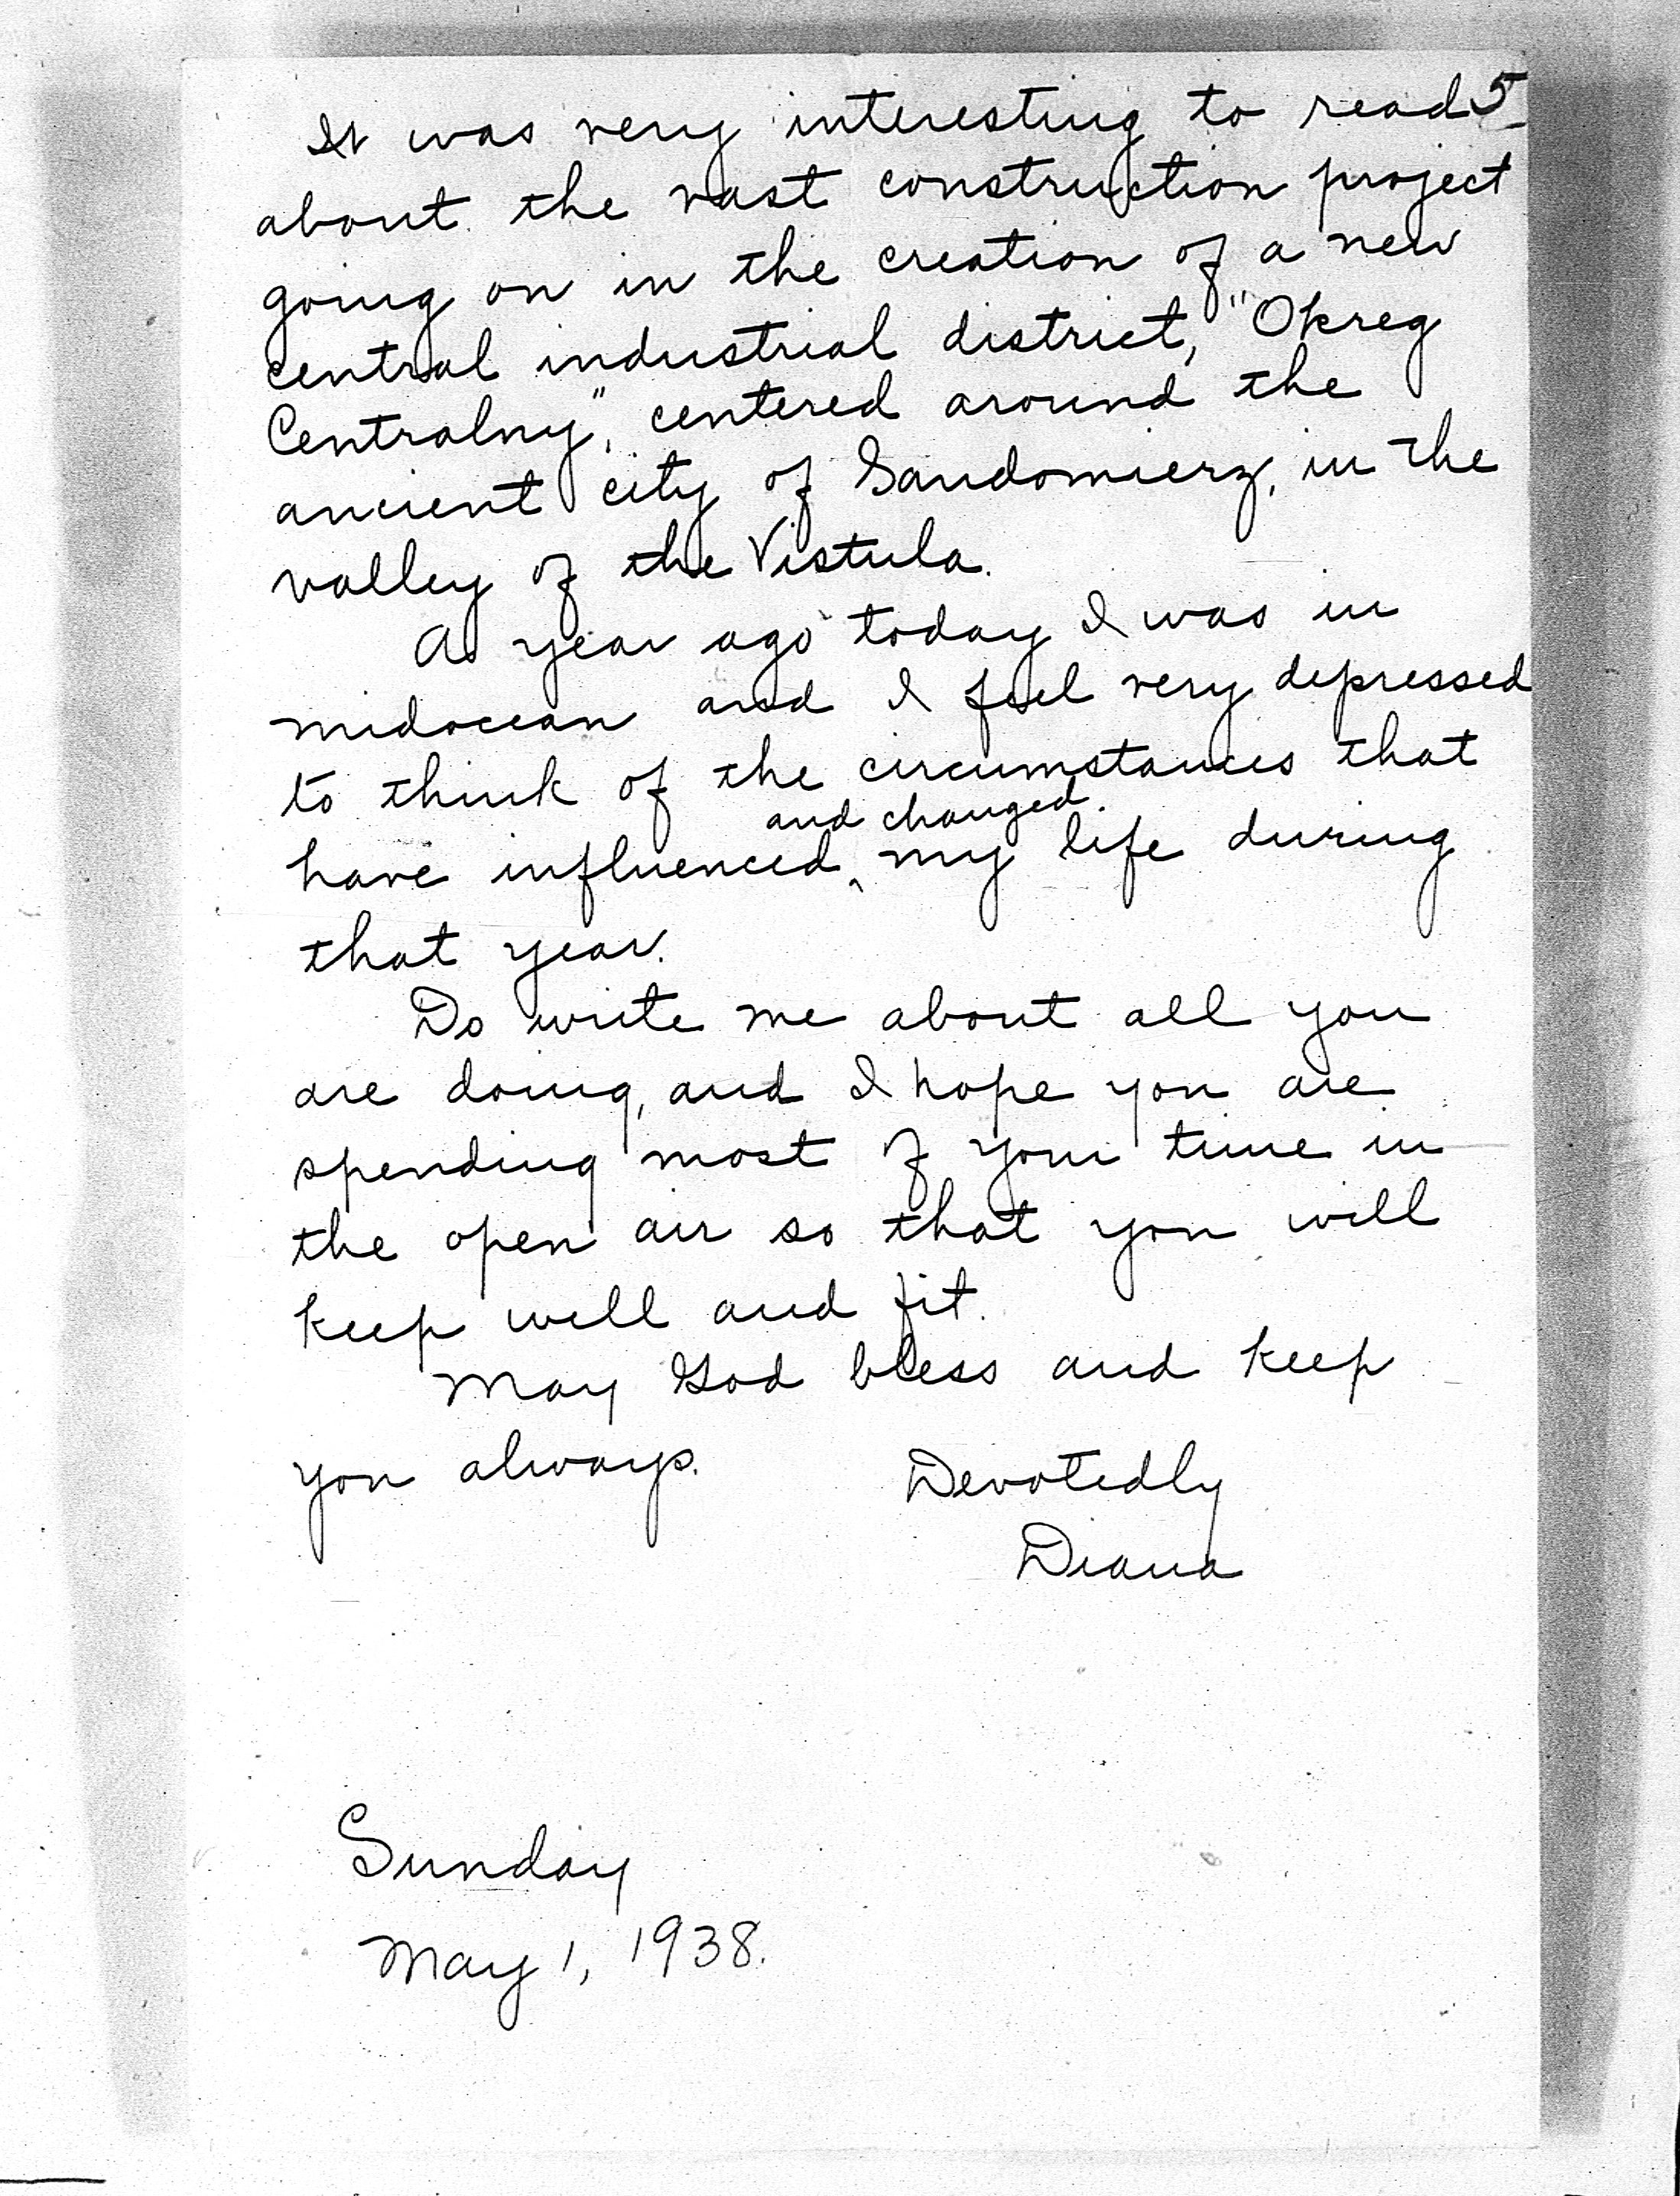 5
It was very interesting to read
about the vast construction project
going on in the creation of a new
central industrial district, "Okreg
Centralny", centered around the
ancient city of Sandomierz, in the
valley of the Vistula.
A year ago today I was in
midocean and I feel very depressed
to think of the circumstances that
and changed
have influenced ‸ my life during
that year.
Do write me about all you
are doing, and I hope you are
spending most of your time in
the open air so that you will
keep well and fit.
May God bless and keep
you always.
Devotedly
Diana
Sunday
May 1, 1938.